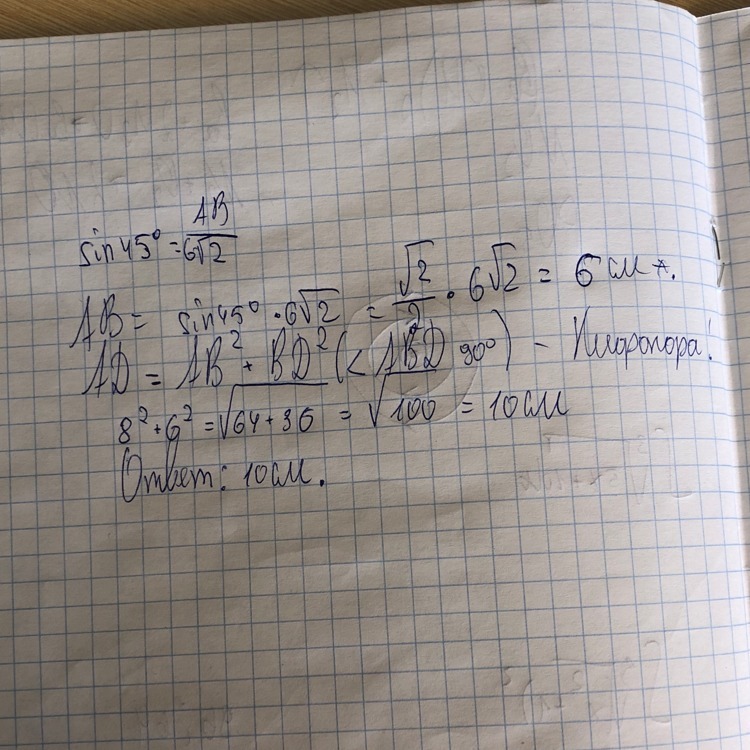 sin45° = AB/6√2
AB = sin45° · 6√2 = √2/2 · 6√2 = 6 см
AD = AB² + BD² (< ABD 90°) –
8² + 6² = √64 + 36 = √100 = 10 см
Ответ: 10 см.